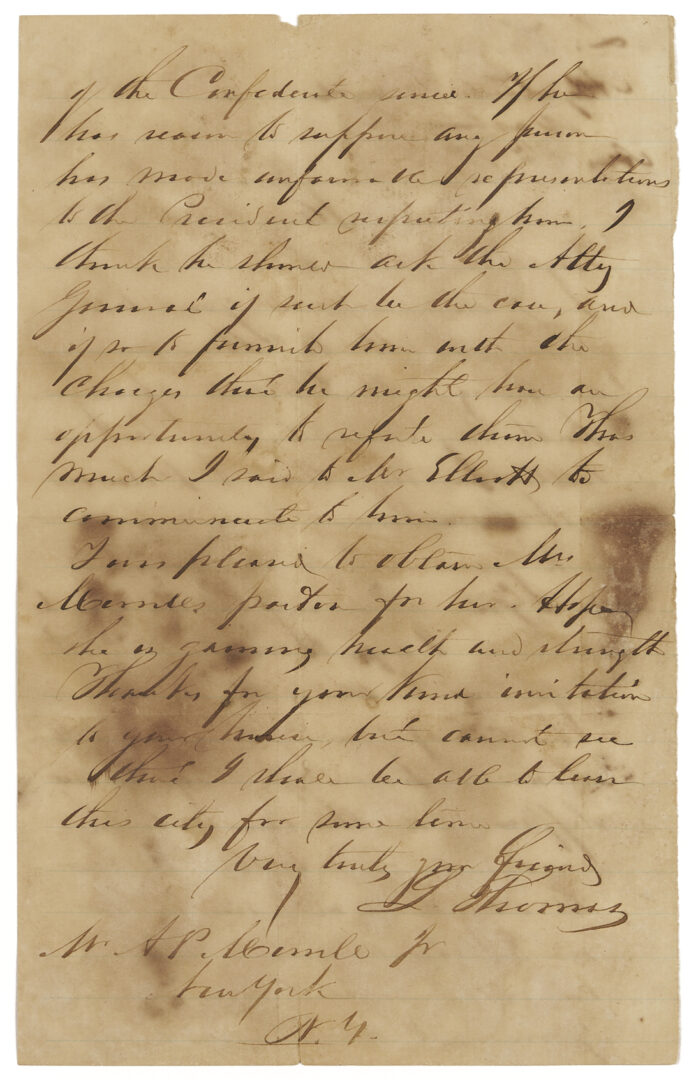 of the Confederate   . If he
has reason to suppose any person
has made unfavorable representations
to the President respecting him, I
think he should ask the Atty
General if such be the case, and
if so to furnish him with the
charges that he might have an
opportunity to refute them. Thus
much I said to Mr Elliott to
communicate to him.
I was pleased to obtain Mrs
Merrills pardon for her. I hope
she is gaining health and strength
Thanks for your kind invitation
to your house, but cannot see
that I shall be able to leave
this city for some time
Very truly your friend
L Thomas
Mr. A P. Merrill Jr
New York
N. Y.